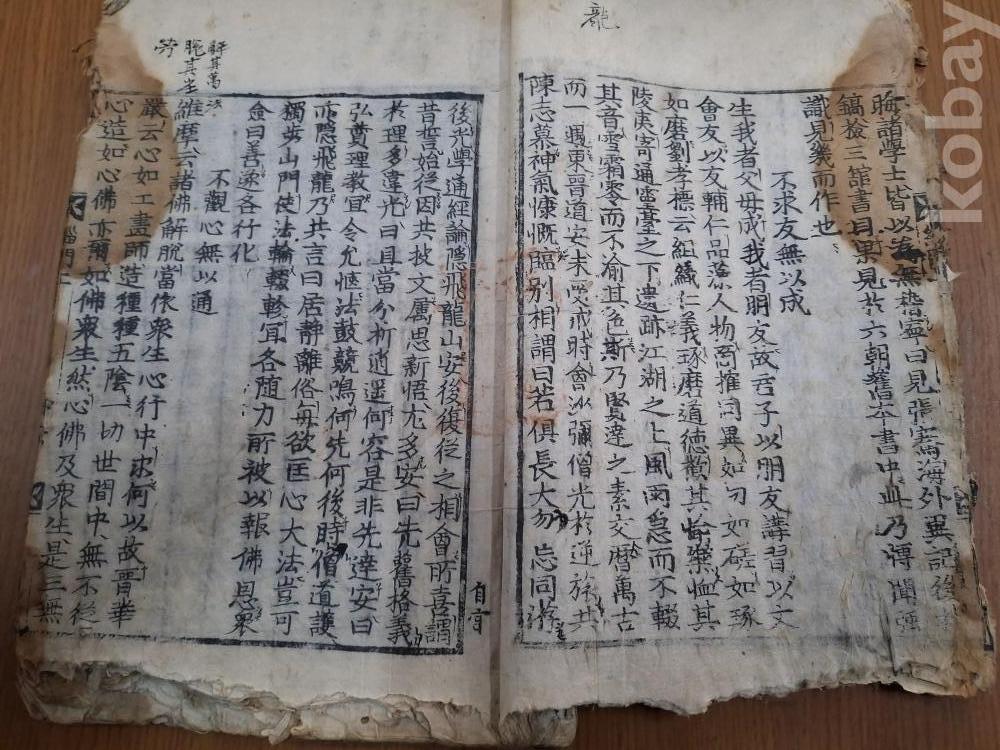 龍
晦諸學士皆以為無稽寧曰見張騫海外異記後
鎬檢三館書目果見於六朝舊本書中此乃博聞強
識見幾而作也
不求友無以成
生我者父母成我者朋友故君子以朋友講習以文
會友以友輔仁品藻人物商搉同異如切如磋如琢
如磨劉孝標云組織仁義琢磨道德歡其愉樂恤其
陵夷寄通靈臺之下遺跡江湖之上風雨急而不輟
其音雪霜零而不渝其色斯乃賢達之素交歷萬古
而一遇東晉道安未受戒時會沙彌僧光於逆旅共
陳志慕神氣慷慨臨別相謂曰若俱長大勿忘同遊
後光學通經論隱飛龍山安後復從之相會所喜謂
昔誓始從因共披文屬思新悟尤多安曰先舊格義
於理多違光曰且當分析逍遙何容是非先達安曰
弘賛理教宜令允愜法鼓競鳴何先何後時僧道護
亦隱飛龍乃共言曰居靜離俗每欲匡心大法豈可
獨步山門使法輪輟軫宜各隨力所被以報佛恩眾
僉曰善遂各行化
不觀心無以通
維摩云諸佛解脫當依眾生心行中求何以故晉華
嚴云心如工畫師造種種五陰一切世間中無不從
心造如心佛亦爾如佛眾生然心佛及眾生是三無
自言
緇門上
kobay